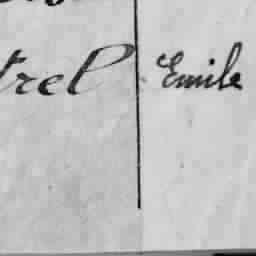 trel Emile